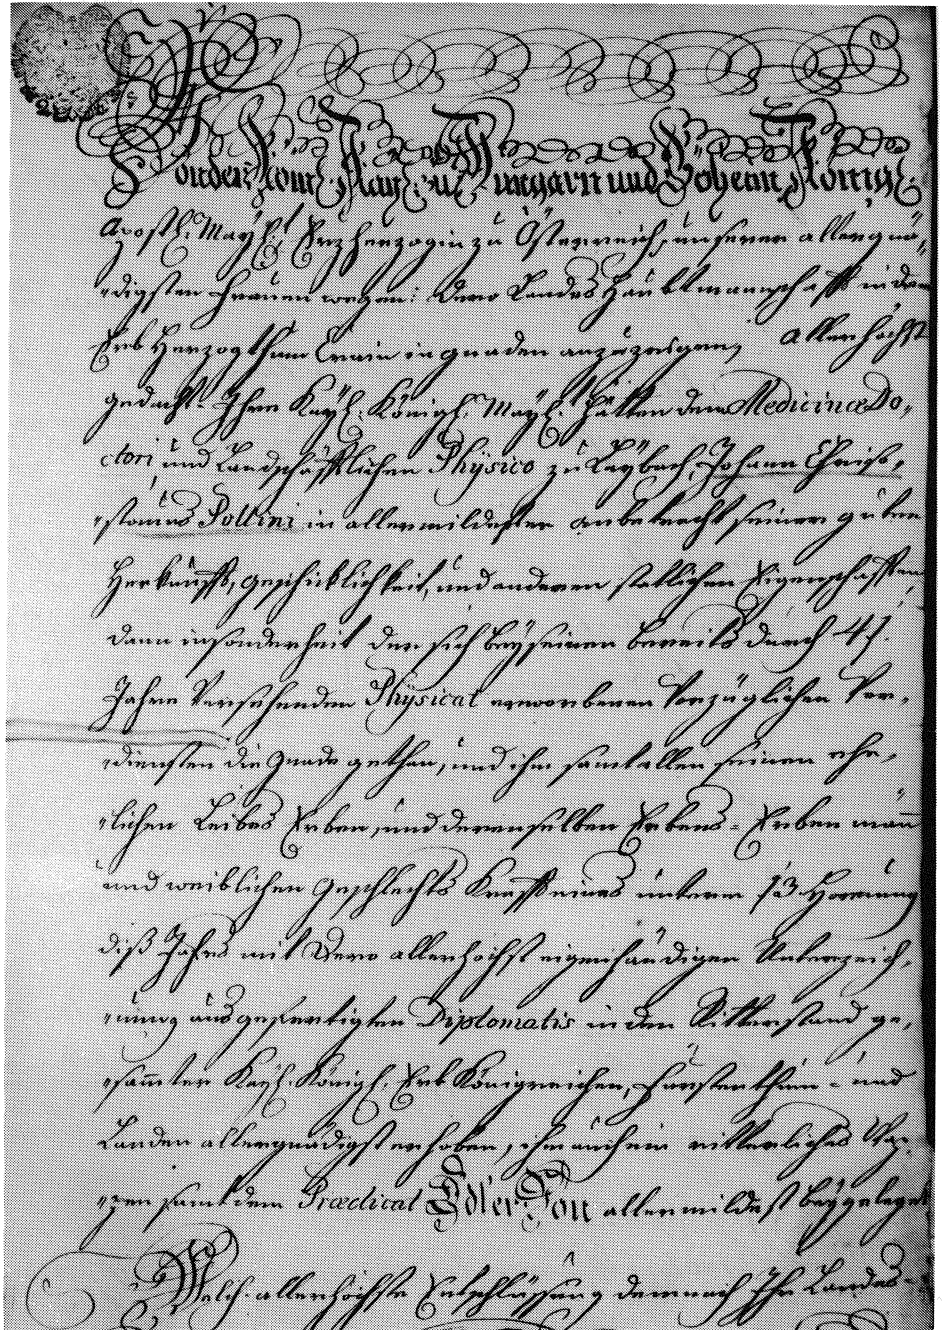 Von der Röm: Kay: zu Hungarn und Böheim Königl:
Apostl: May: Erzherzogin zu Österreich, unserer allergnä-
-digsten Frauen wegen: Dero Landes Haubtmannschafft in dem
Erb Herzogthum Crain in gnaden anzuzeigen, Allerhöchst
gedacht Ihre Kay: Königl: May: hätten dem Medicinæ Do-
ctori, und Landschäfftlichen Physico zu Laybach, Johann Chris-
-stanus Pollini in allermildester anbetracht seiner guten
Herkunfft, geschicklichkeit, und anderen stattlichen Eigenschafften,
dann insonderheit der sich bey seinen bereits durch 41.
Jahre Versehenden Physicat erworbenen Vorzüglichen Ver-
-diensten die Gnade gethan, und ihn samt allen seinen ehe-
-lichen Leibes Erben, und derenselben Erbens-Erben mann
und weiblichen Geschlechts Krafft eines unterm 13. Hornung
diß Jahrs mit Dero allerhöchst eigenhändigen Unterzeich-
-nung ausgefertigten Diplomatis in den Ritterstand ge-
-sammter Kay: Königl: Erb Königreichen, Fürstenthum- und
Landen allergnädigst erhoben, ihm auch ein ritterliches Wap-
-pen samt dem Prædicat Edler Von allermildest beygeleget
Welch-allerhöchste Entschlüssung demnach Ihr Landes-